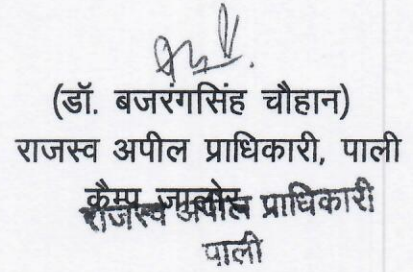 (डॉ. बजरंगसिंह चौहान)
राजस्व अपील प्राधिकारी, पाली
कैम्प जालोर
राजस्व अपील प्राधिकारी
पाली